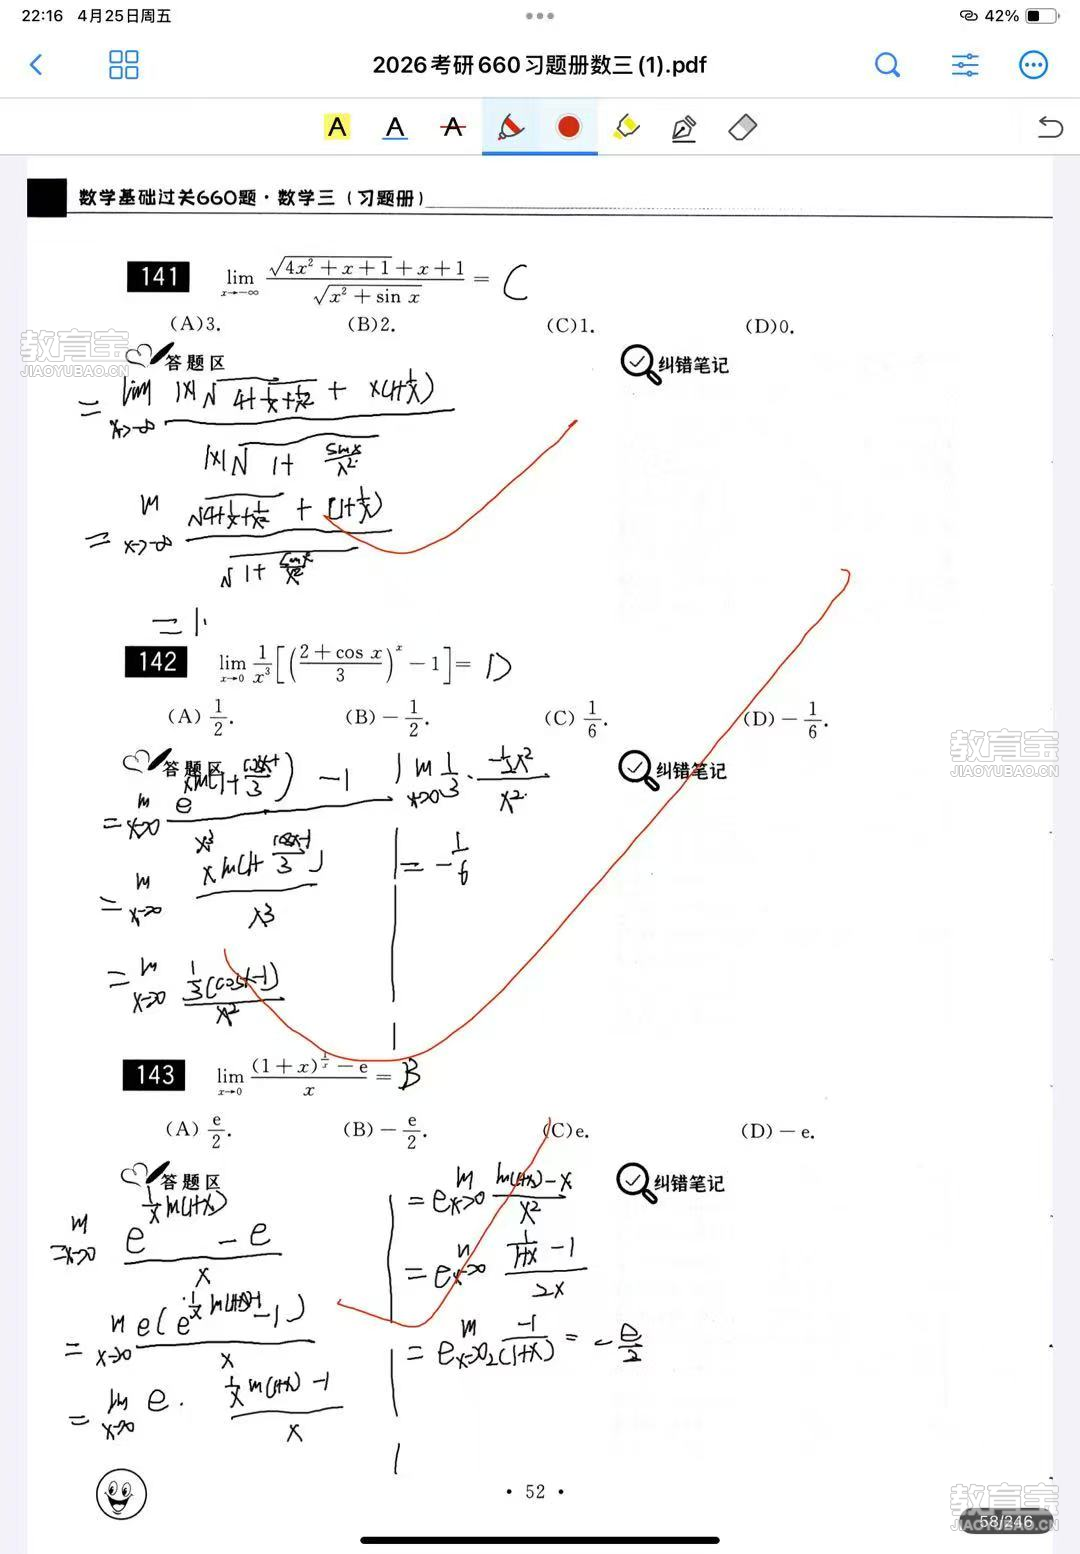 22:16 4月25日周五
42%
2026考研660习题册数三(1).pdf
A A A
数学基础过关660题·数学三（习题册）
141 lim x→-∞ (√(4x²+x+1)+x+1)/√(x²+sin x) = C
(A)3. (B)2. (C)1. (D)0.
教育宝
JIAOYUBAO.CN
答题区 纠错笔记
= lim x→-∞ (|x|√(4+1/x+1/x²) + x(1+1/x))/(|x|√(1+sinx/x²))
= lim x→-∞ (√(4+1/x+1/x²) + (1+1/x))/√(1+sinx/x²)
= 1.
142 lim x→0 1/x³[((2+cos x)/3)^x - 1] = D
(A) 1/2. (B) -1/2. (C) 1/6. (D) -1/6.
教育宝
JIAOYUBAO.CN
答题区 纠错笔记
= lim x→0 (e^(xln(1+(cosx-1)/3)) - 1)/x³
= lim x→0 (xln(1+(cosx-1)/3))/x³
= lim x→0 (1/3(cosx-1))/x²
lim x→0 1/3 · (-1/2x²)/x²
= -1/6
143 lim x→0 ((1+x)^(1/x) - e)/x = B
(A) e/2. (B) -e/2. (C)e. (D)-e.
答题区 纠错笔记
= lim x→0 (e^(1/x ln(1+x)) - e)/x
= lim x→0 e(e^(1/x ln(1+x)-1) - 1)/x
= lim x→0 e · (1/x ln(1+x) - 1)/x
= e lim x→0 (ln(1+x)-x)/x²
= e lim x→0 (1/(1+x) - 1)/2x
= e lim x→0 -1/2(1+x) = -e/2
· 52 ·
教育宝
JIAOYUBAO.CN
58/246